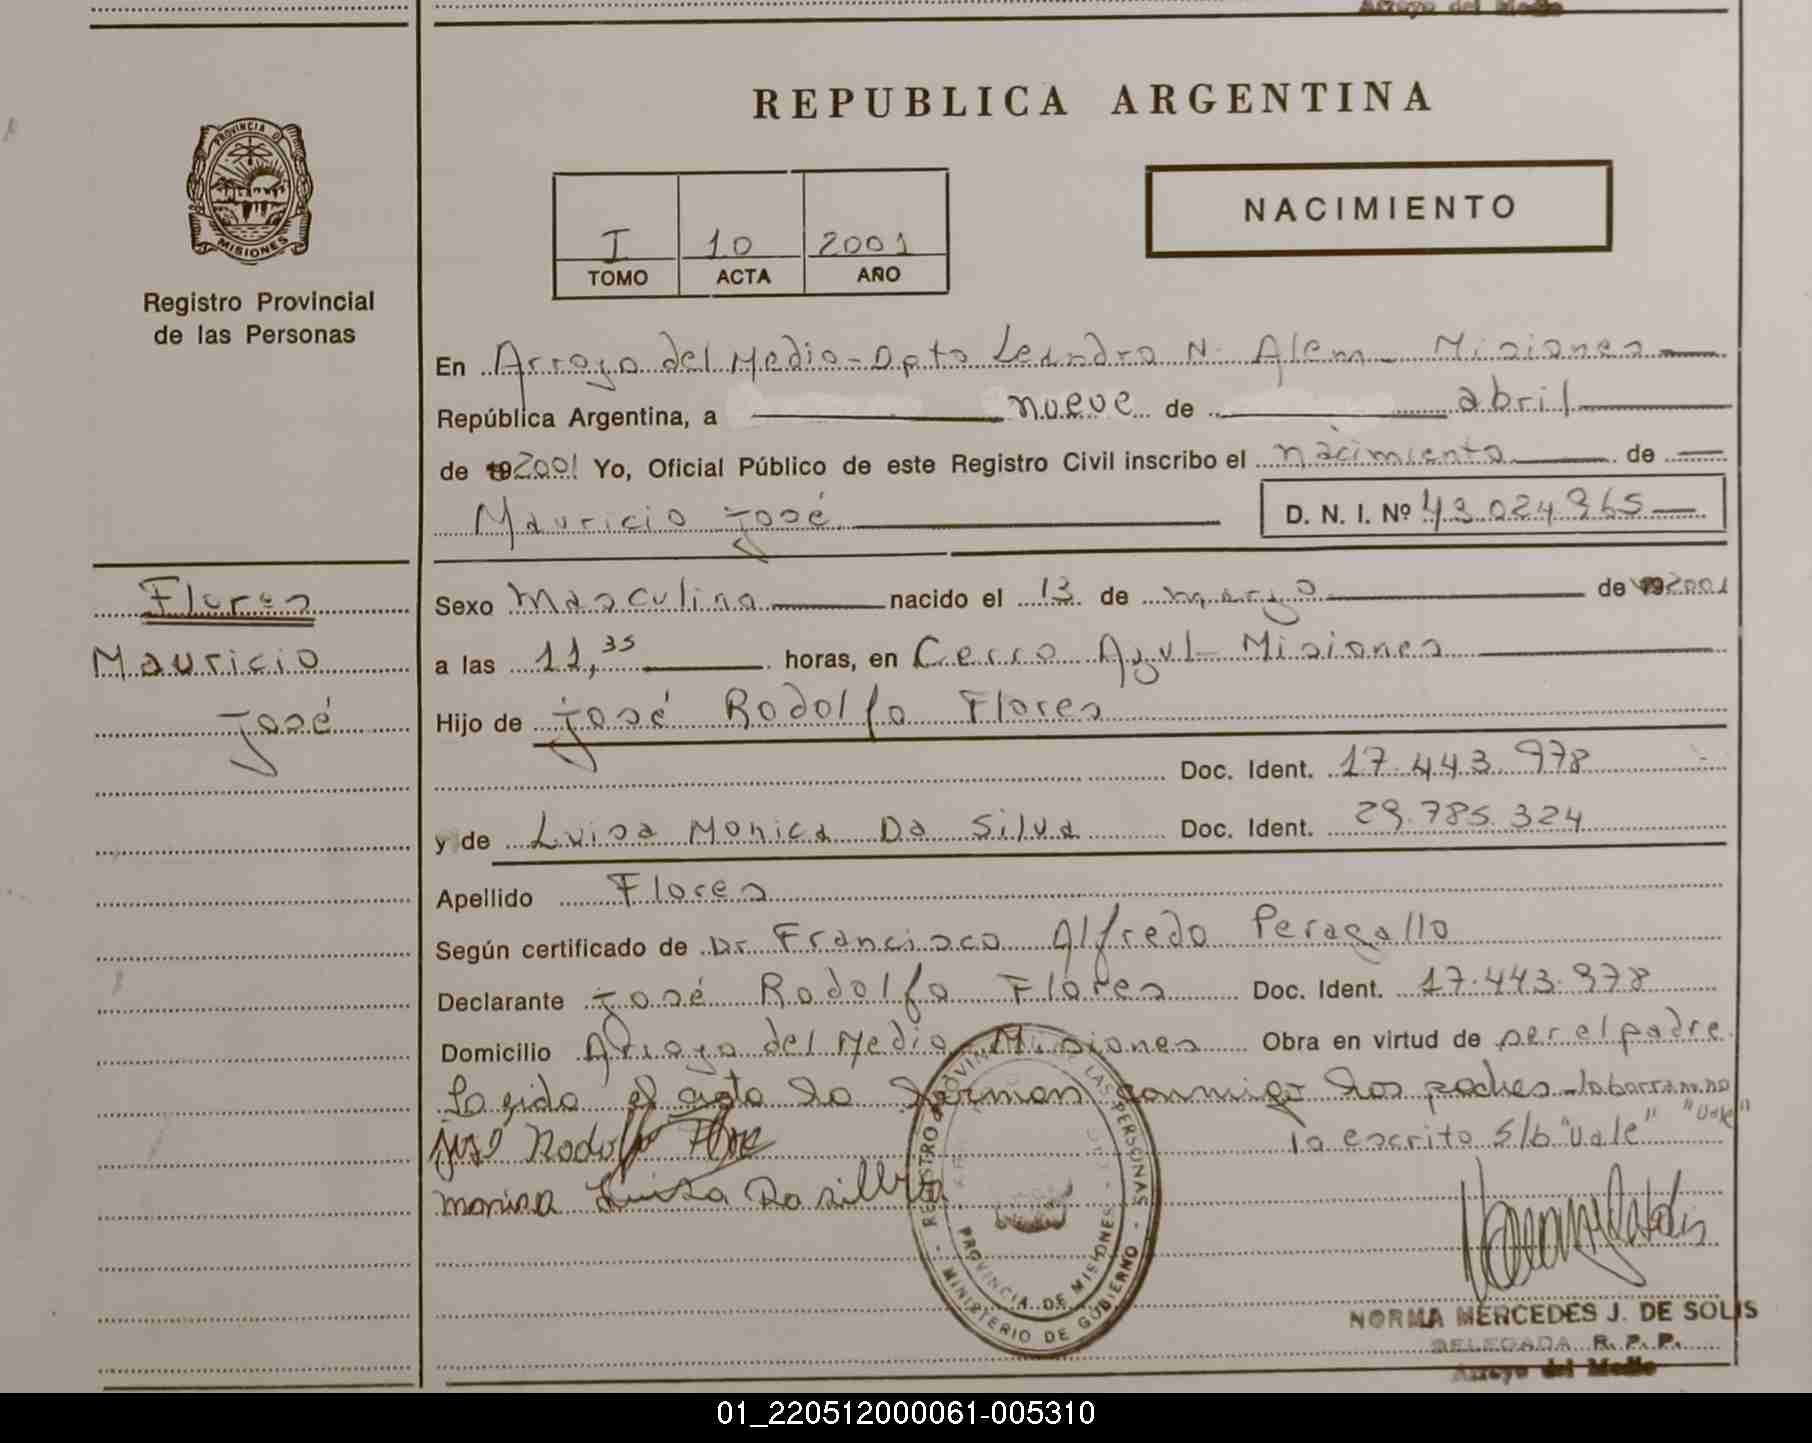 Arroyo del Medio
REPUBLICA ARGENTINA
PROVINCIA DE
MISIONES
Registro Provincial
de las Personas
I 10 2001
TOMO ACTA AÑO
NACIMIENTO
En Arroyo del Medio - Dpto Leandro N. Alem - Misiones
República Argentina, a nueve de abril
de 2001 Yo, Oficial Público de este Registro Civil inscribo el nacimiento de
Mauricio José D. N. I. Nº 43.024.965
Flores
Mauricio
José
Sexo Masculino nacido el 13 de marzo de 2001
a las 11,35 horas, en Cerro Azul - Misiones
Hijo de José Rodolfo Flores
Doc. Ident. 17.443.978
y de Luisa Monica Da Silva Doc. Ident. 29.785.324
Apellido Flores
Según certificado de Dr Francisco Alfredo Peragallo
Declarante José Rodolfo Flores Doc. Ident. 17.443.978
Domicilio Arroyo del Medio Misiones Obra en virtud de ser el padre
Leida el acta la firman conmigo los padres - 
lo escrito s/b "Vale" "Vale"
José Rodolfo Flores
monica Luisa Da silva
REGISTRO PROVINCIAL DE LAS PERSONAS
PROVINCIA DE MISIONES
MINISTERIO DE GOBIERNO
NORMA MERCEDES J. DE SOLIS
DELEGADA R. P. P.
Arroyo del Medio
01_220512000061-005310